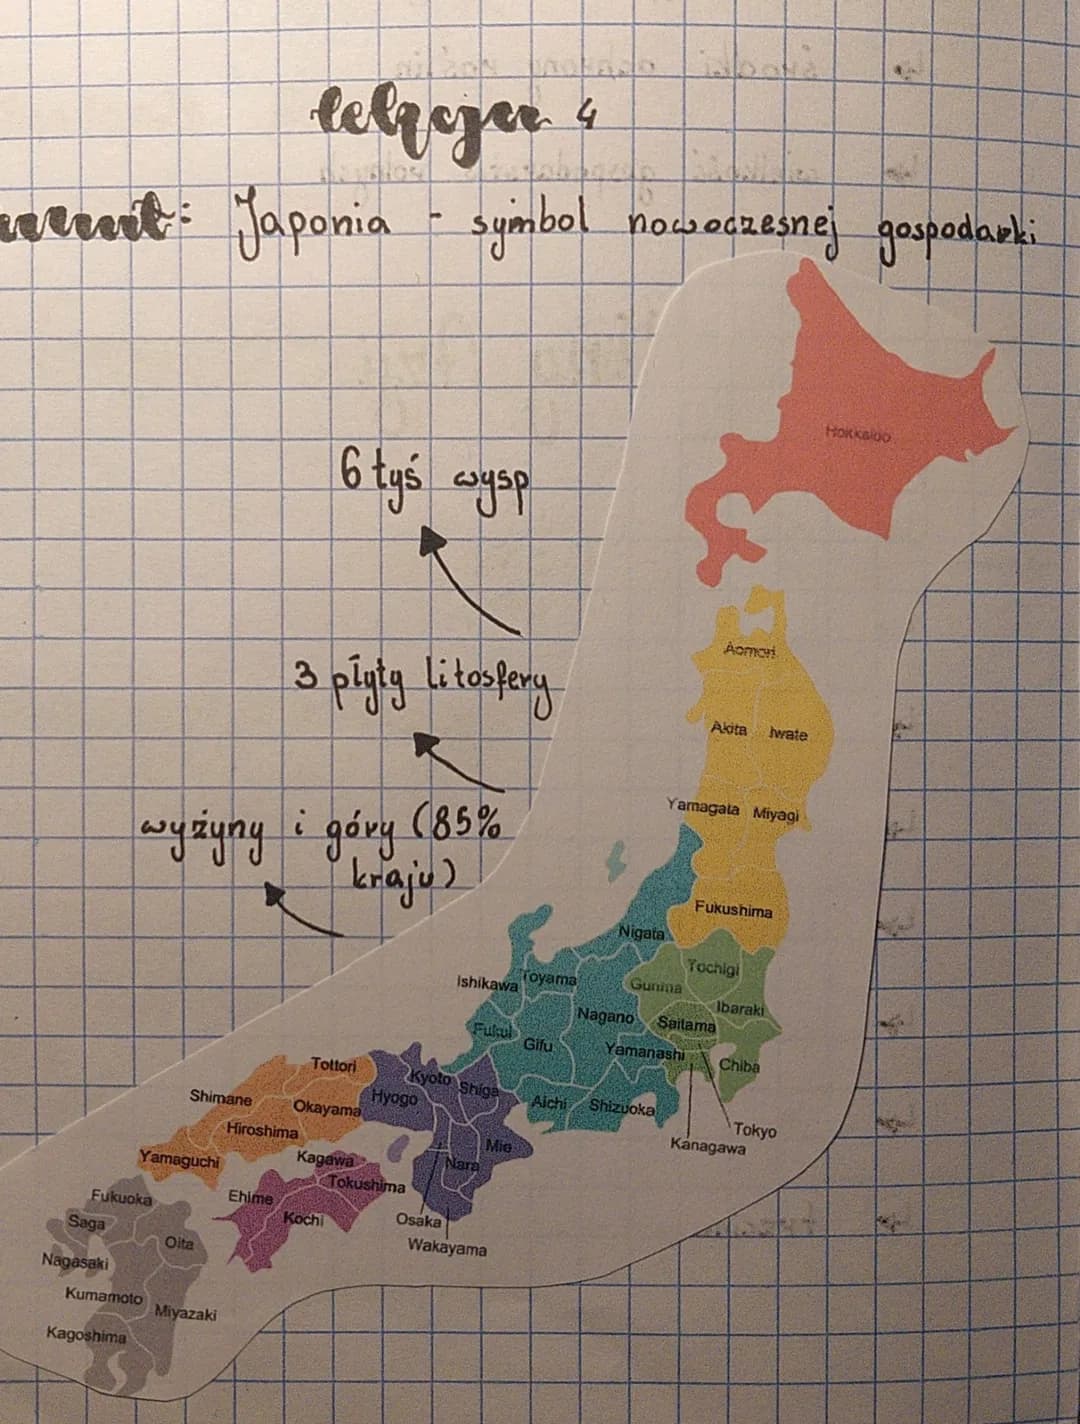 lekcja 4
temat: Japonia - symbol nowoczesnej gospodarki
Hokkaido
6 tyś wysp
Aomori
3 płyty litosfery
Akita Iwate
Yamagata Miyagi
wyżyny i góry (85%
kraju)
Fukushima
Nigata
Tochigi
Ishikawa Toyama
Gunma
Ibaraki
Nagano
Saitama
Fukui
Gifu
Yamanashi
Chiba
Tottori
Kyoto
Shiga
Hyogo
Shimane
Okayama
Aichi
Shizuoka
Hiroshima
Tokyo
Kanagawa
Mie
Nara
Yamaguchi
Kagawa
Tokushima
Fukuoka
Ehime
Kochi
Osaka
Saga
Oita
Wakayama
Nagasaki
Kumamoto
Miyazaki
Kagoshima